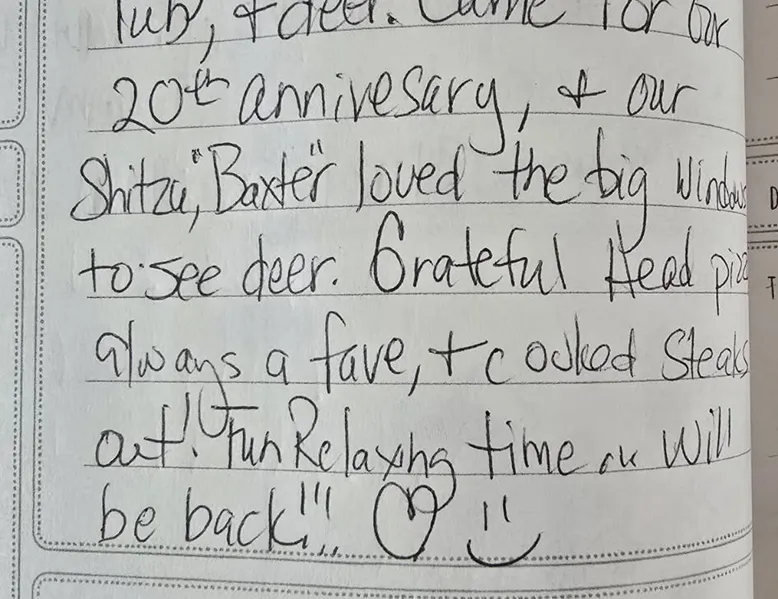 Tub, + deer. Came for our
20th annivesary, + our
Shitzu, "Baxter" loved the big windows
to see deer. Grateful Head pizza
always a fave, + cooked Steaks
out! Fun Relaxing time will
be back!!!